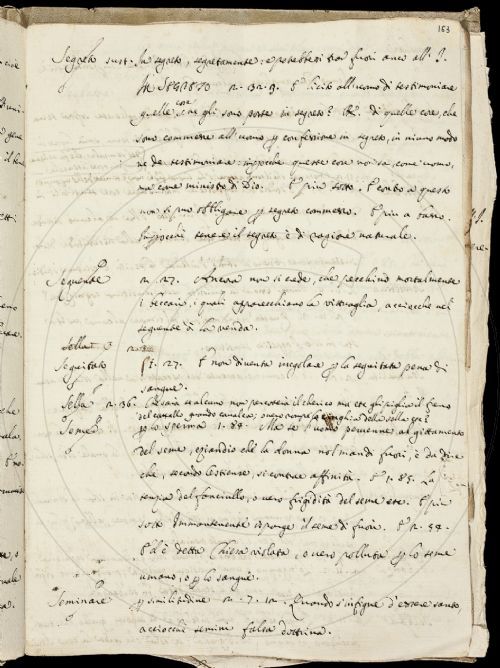 163
Segreto sust. In segreto, segretamente: e potrebbesi trar fuori anco all' J.
IN SEGRETO 2. 32. 9. È licito all' uomo di testimoniare
quelle cose, che gli sono poste in segreto? Re. di quelle cose, che
sono commesse all' uomo p confessione in segreto, in niuno modo
ne de testimoniare: impocchè queste cose non sa, come uomo,
ma come ministro di Dio. E più sotto. E contro a questo
non si può obbligare p segreto commesso. E più a sotto.
Impocchè tenere il segreto è di ragione naturale.
Seguente 2. 27. Ancora non si crede, che pecchino mortalmente
i beccari, i quali apparecchiano la vittuaglia, acciocchè nel
seguente dì la venda.
Sella
Seguitato 1. 27. E non diventa inregolare p la seguitata pena di
sangue.
Sella 2. 36. che se alcuno non percotesse il cherico ma
del cavallo, quando cavalca; o vero rompesse la cinghia della sella
Seme p lo sperma 1. 84. Ma se l' uomo pervenne al gittamento
del seme, eziandio che la donna nol mandi fuori, è da dire
che, secondo l'Ostiense, si contrae affinità. E 1. 85. La
del fanciullo, o vero frigidità del seme etc. E più
sotto Immantenente isparge il seme di fuori. E 2. 54.
Ed è detta Chiesa violata, o vero polluta p lo seme
umano, o p lo sangue.
Seminare p similitudine 2. 7. 12. Quando s' infigne d' essere santo
acciocchè semini falsa dottrina.